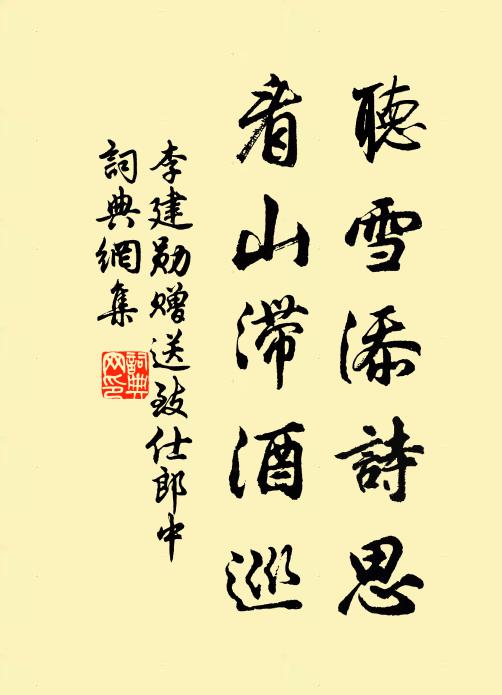 聽雪添詩思
看山滯酒巡
李建勛赠送致仕郎中
詞典網集
詞典网印